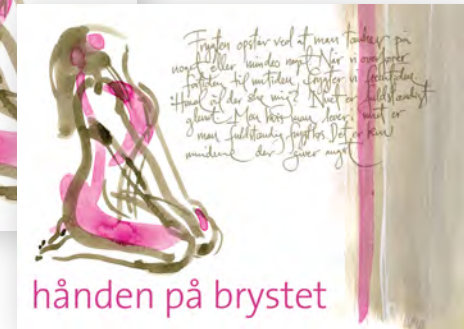 Frygten opstår ved at man tænker på
noget eller mindes noget. Når vi overfører
fortiden til nutiden, frygter vi fremtiden.
"Hvad vil der ske mig?" Nuet er fuldstændigt
glemt. Men hvis man lever i nuet er
man fuldstændig frygtløs. Det er kun
minderne der giver angst
hånden på brystet